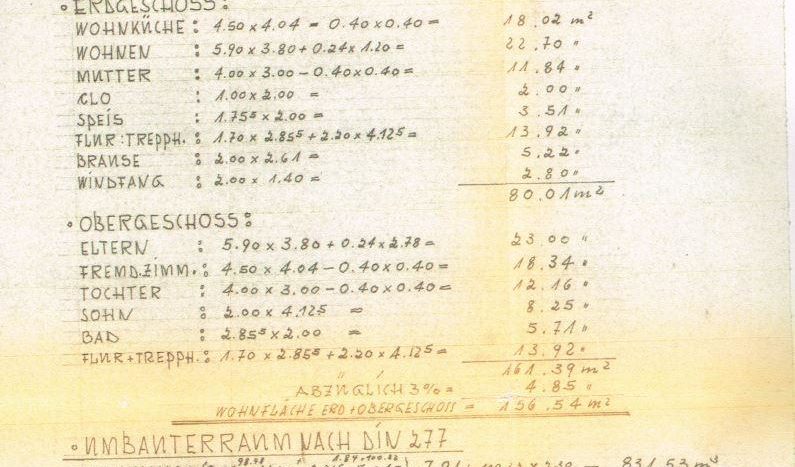 • ERDGESCHOSS:
WOHNKÜCHE: 4.50 x 4.04 - 0.40 x 0.40 = 18.02 m²
WOHNEN : 5.90 x 3.80 + 0.24 x 1.20 = 22.70 "
MUTTER : 4.00 x 3.00 - 0.40 x 0.40 = 11.84 "
CLO : 1.00 x 2.00 = 2.00 "
SPEIS : 1.75⁵ x 2.00 = 3.51 "
FLUR:TREPPH. : 1.70 x 2.85⁵ + 2.20 x 4.125 = 13.92 "
BRAUSE : 2.00 x 2.61 = 5.22 "
WINDFANG : 2.00 x 1.40 = 2.80 "
80.01 m²
• OBERGESCHOSS:
ELTERN : 5.90 x 3.80 + 0.24 x 2.78 = 23.00 "
FREMDZIMM. : 4.50 x 4.04 - 0.40 x 0.40 = 18.34 "
TOCHTER : 4.00 x 3.00 - 0.40 x 0.40 = 12.16 "
SOHN : 2.00 x 4.125 = 8.25 "
BAD : 2.85⁵ x 2.00 = 5.71 "
FLUR+TREPPH. : 1.70 x 2.85⁵ + 2.20 x 4.125 = 13.92 "
161.39 m²
ABZÜGLICH 3% = 4.85 "
WOHNFLÄCHE ERD+OBERGESCHOSS = 156.54 m²
• UMBAUTERRAUM NACH DIN 277
831.53 m³